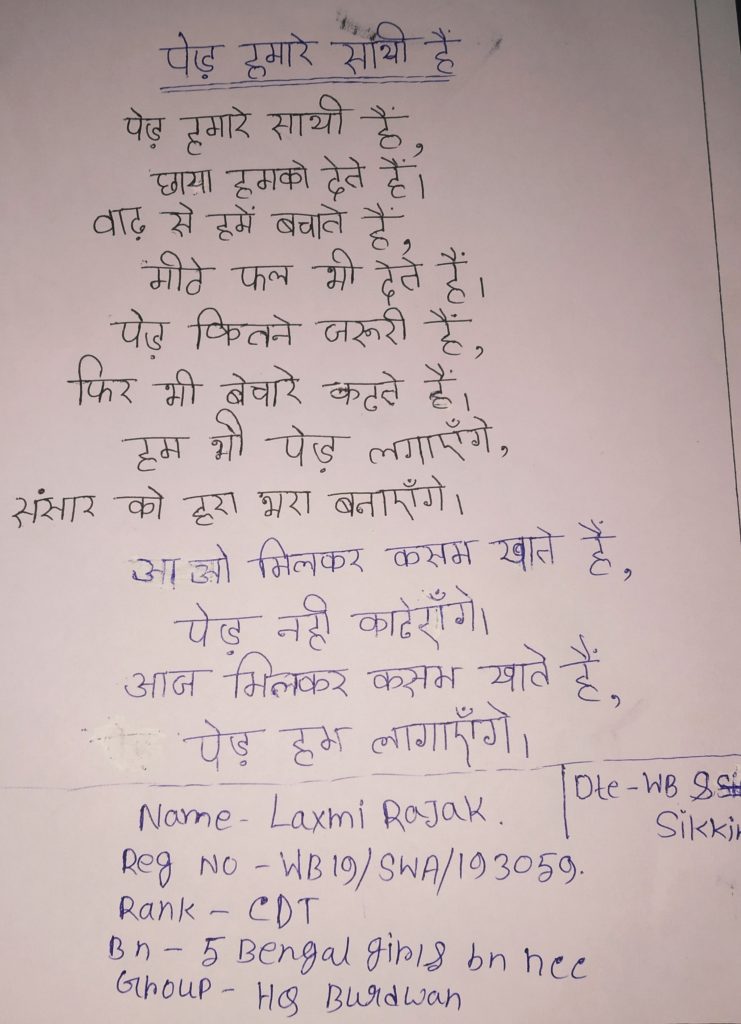 पेड़ हमारे साथी हैं
पेड़ हमारे साथी हैं,
छाया हमको देते हैं।
वाढ़ से हमें बचाते हैं,
मीठे फल भी देते हैं।
पेड़ कितने जरूरी हैं,
फिर भी बेचारे कटते हैं।
हम भी पेड़ लगाएँगे,
संसार को हरा भरा बनाएँगे।
आओ मिलकर कसम खाते हैं,
पेड़ नही काटेएँगे।
आज मिलकर कसम खाते हैं,
पेड़ हम लागाएँगे।
Name - Laxmi Rajak.
Dte - WB &
Sikkim
Reg No - WB19/SWA/193059.
Rank - CDT
Bn - 5 Bengal girls bn ncc
Group - HQ Burdwan